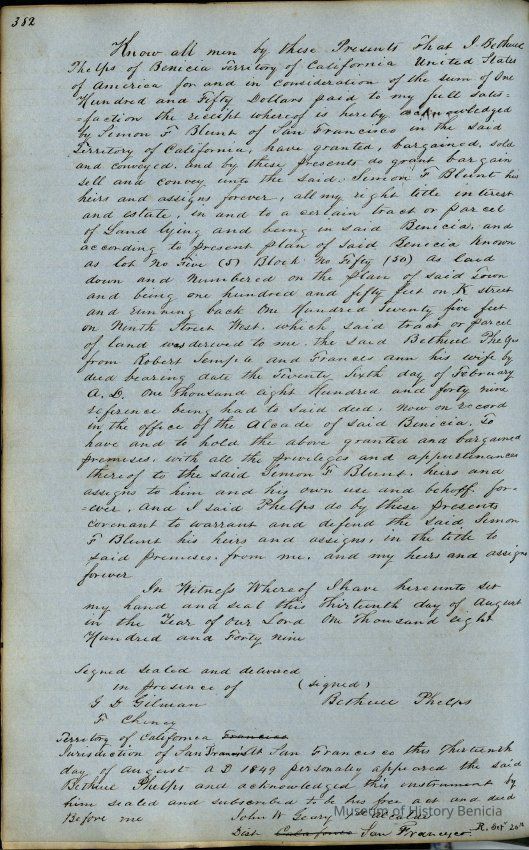 382
Know all men by these Presents That I Bethuel
Phelps of Benicia Territory of California United States
of America for and in consideration of the sum of One
Hundred and Fifty Dollars paid to my full satis-
=faction the receipt whereof is hereby acknowledged
by Simon F Blunt of San Francisco in the said
Territory of California, have granted, bargained, sold
and conveyed, and by these presents do grant bargain
sell and convey unto the said, Simon F Blunt his
heirs and assigns forever, all my right title interest
and estate, in and to a certain tract or parcel
of Land lying and being in said Benicia, and
according to present plan of said Benicia known
as lot No Five (5) Block No Fifty (50) as laid
down and numbered on the plan of said Town
and being one hundred and fifty feet on K street
and running back One Hundred Seventy five feet
on Ninth Street West, which said tract or parcel
of land was derived to me, the said Bethuel Phelps
from Robert Semple and Frances ann his wife by
deed bearing date the Twenty Sixth day of February
A.D. One Thousand eight Hundred and forty nine
reference being had to said deed, now on record
in the office of the Alcade of said Benicia, To
have and to hold the above granted and bargained
premises, with all the privileges and appurtenances
thereof to the said Simon F Blunt, heirs and
assigns to him and his own use and behoff for-
=ever, And I said Phelps do by these presents
covenant to warrant and defend the said Simon
F Blunt his heirs and assigns, in the title to
said premises, from me, and my heirs and assigns
forever
In Witness Whereof I have hereunto set
my hand and seal this Thirteenth day of August
in the Year of our Lord One Thousand eight
Hundred and Forty nine
Signed sealed and delivered
in presence of (signed)
G D Gilman Bethuel Phelps
F Cheney
Territory of California Francisco
Jurisdiction of San Francisco At San Francisco this Thirteenth
day of August A D 1849 personally appeared the said
Bethuel Phelps and acknowledged this instrument by
him sealed and subscribed to be his free act and deed
Before me John W Geary
Dist California San Francisco. R. Oct 20th
Museum of History Benicia